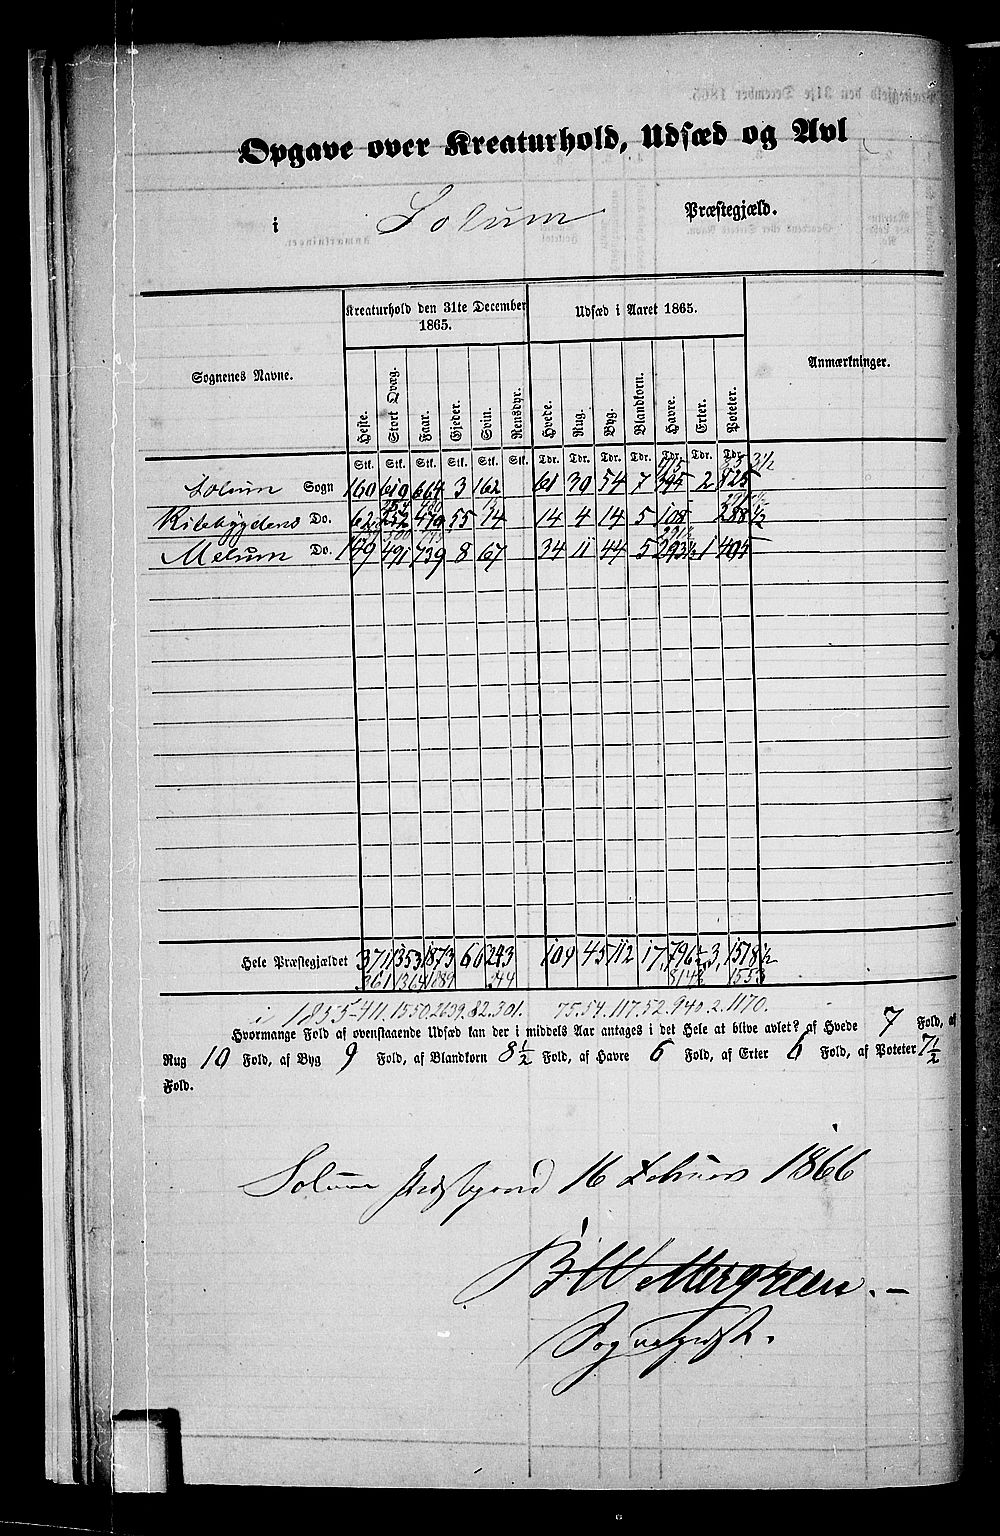 Opgave over Kreaturhold, Udsæd og Avl
i Solum Præstegjæld.
Sognenes Navne.
Kreaturhold den 31te December 1865.
Udsæd i Aaret 1865.
Anmærkninger.
Heste. Stort Qvæg. Faar. Gjeder. Sviin. Rensdyr. Hvede. Rug. Byg. Blandkorn. Havre. Erter. Poteter.
Stk. Stk. Stk. Stk. Stk. Stk. Tdr. Tdr. Tdr. Tdr. Tdr. Tdr. Tdr.
Solum Sogn 160 610 664 3 162 61 30 54 7 395 2 825
Do. 62 252 470 55 14 14 4 14 5 108 288 1/2
Melum Do. 149 491 739 8 67 34 11 44 5 293 1/2 1 405
Hele Præstegjældet 371 1353 1873 66 243 109 45 112 17 796 1/2 3 1518 1/2
361 1364 1889 244 1553
i 1855 411. 1550. 2639. 82. 301. 75. 54. 117. 52. 940. 2. 1170.
Hvormange Fold af ovenstaaende Udsæd kan der i middels Aar antages i det Hele at blive avlet? af Hvede 7 Fold, af
Rug 10 Fold, af Byg 9 Fold, af Blandkorn 8 1/2 Fold, af Havre 6 Fold, af Erter 6 Fold, af Poteter 7 1/2
Fold.
Solum Præstegaard 16 Februar 1866
Sognepræst.